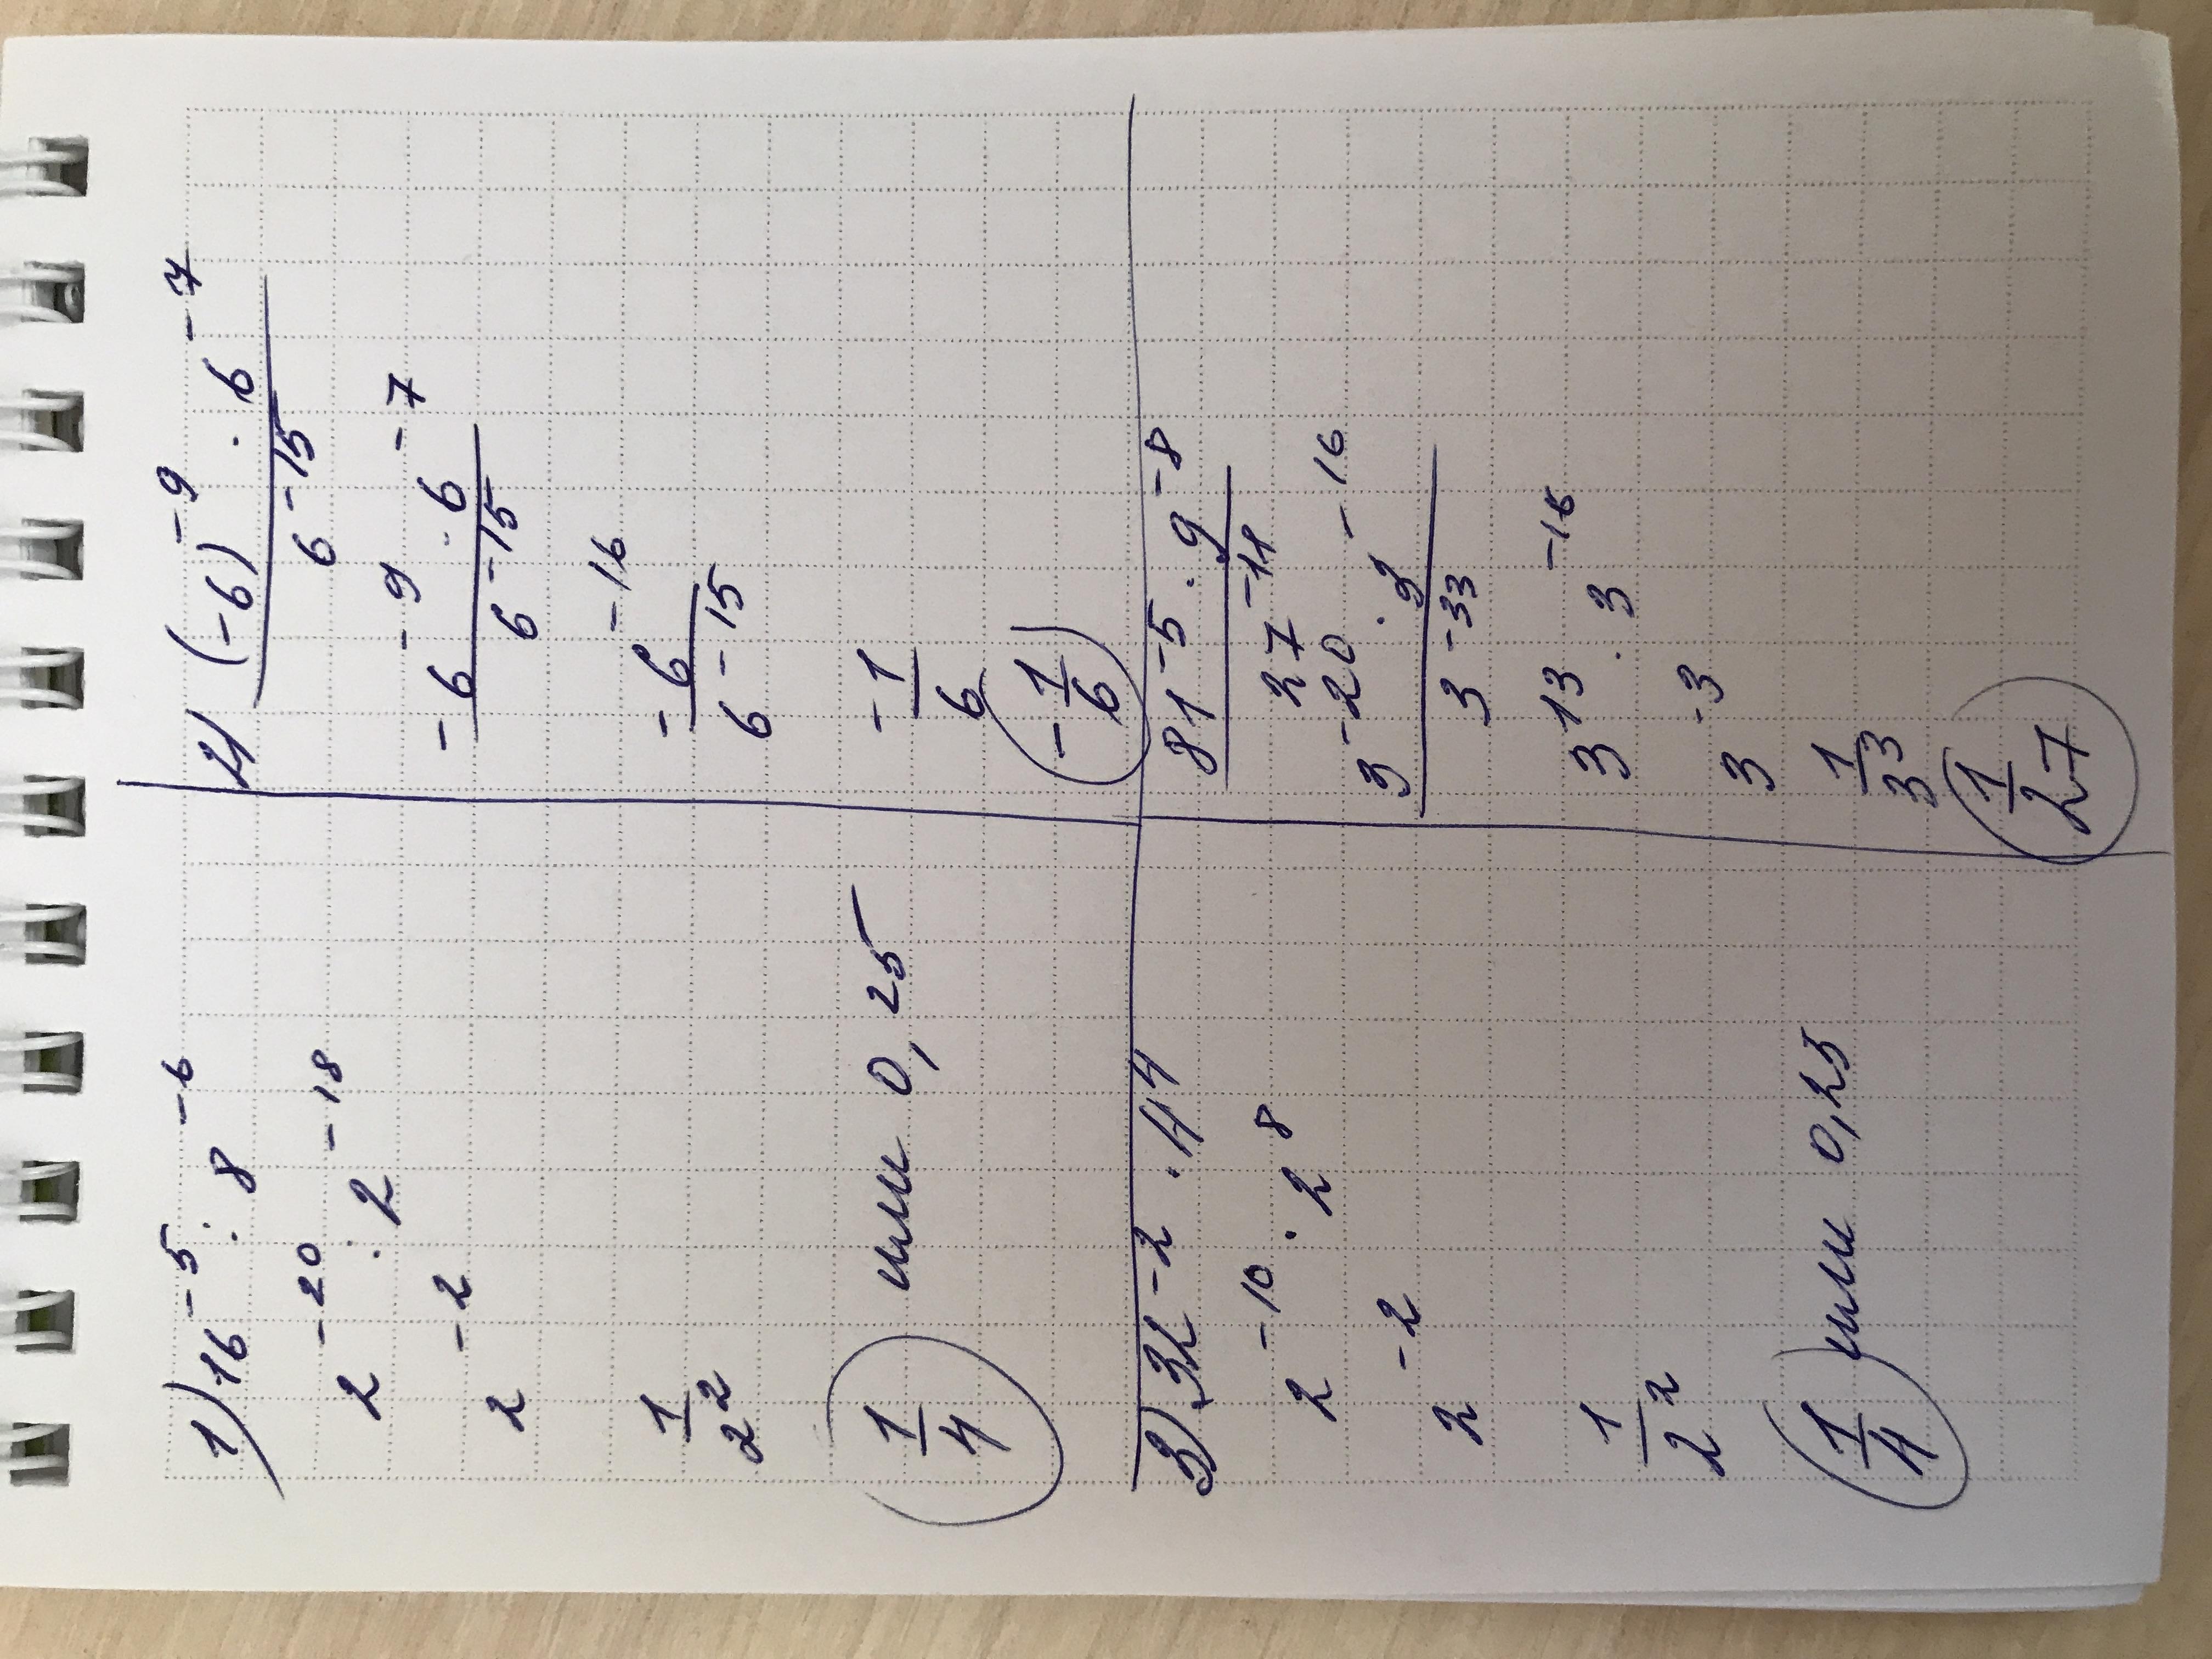 1) 16^-5 : 8^-6
2^-20 : 2^-18
2^-2
1/2^2
1/4 или 0,25
2) (-6)^-9 · 6^-7 / 6^-15
-6^-9 · 6^-7 / 6^-15
-6^-16 / 6^-15
-1/6
-1/6
3) 32^-2 · 4^4
2^-10 · 2^8
2^-2
1/2^2
1/4 или 0,25
81^-5 · 9^-8 / 27^-11
3^-20 · 3^-16 / 3^-33
3^13 · 3^-16
3^-3
1/3^3
1/27